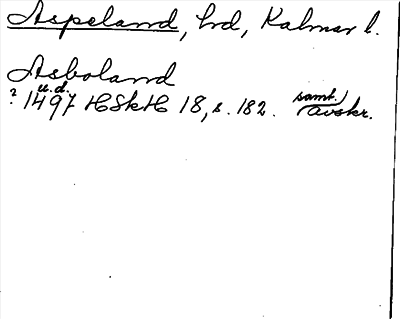 Aspeland, hd, Kalmar l.
Asboland
? u.d. 1497 HSkH 18, s. 182. samt. avskr.